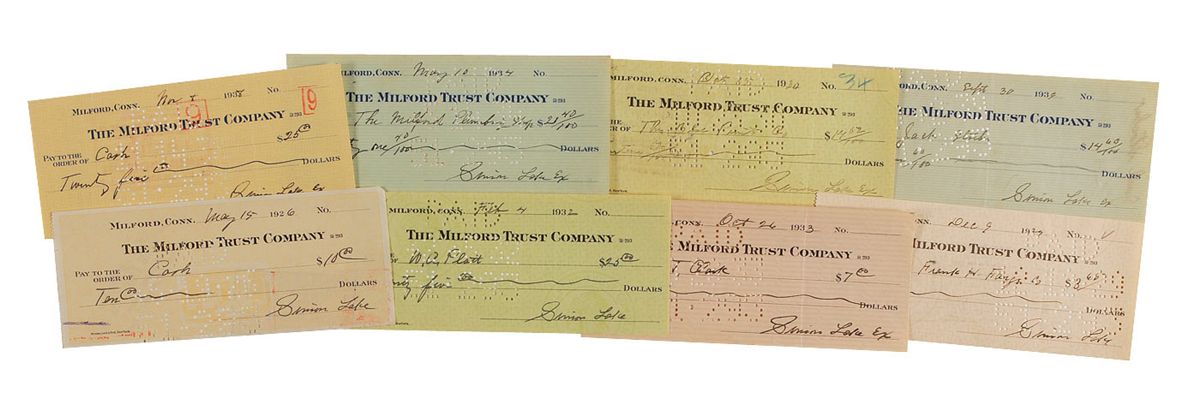 MILFORD, CONN. Nov 8 1938 No.
9 9
THE MILFORD TRUST COMPANY 51-293
$25 00
PAY TO THE ORDER OF Cash
Twenty five 00
Lake Ex
MILFORD, CONN. May 10 1934 No.
THE MILFORD TRUST COMPANY 51-293
The Milford Plumbing $21 40/100
ty one 40/100 DOLLARS
Simon Lake Ex
MILFORD, CONN. Oct 1930 34
THE MILFORD TRUST COMPANY 51-293
ORDER OF The
DOLLARS
Simon Lake Ex
ORD, CONN. Sept 30 1939 No.
MILFORD TRUST COMPANY 51-293
Jack $14 60/100
60/100 DOLLARS
Simon Lake Ex
MILFORD, CONN. May 15 1926 No.
THE MILFORD TRUST COMPANY 51-293
PAY TO THE ORDER OF Cash $10 00
Ten 00 DOLLARS
Simon Lake
MILFORD, CONN. Feb 4 1932 No.
THE MILFORD TRUST COMPANY 51-293
W. Platt $25 00
nty five 00 DOLLARS
Simon Lake
CONN. Oct 26 1933 No.
MILFORD TRUST COMPANY 51-293
Clark $7 00
DOLLARS
Simon Lake Ex
NN. Dec 9 No.
MILFORD TRUST COMPANY 51-293
Frank H
DOLLARS
Simon Lake